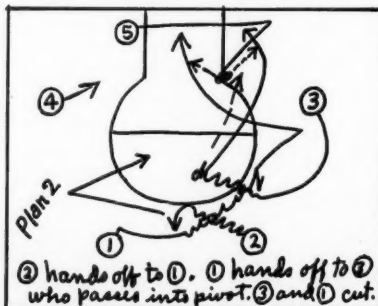 ⑤
④
③
Plan 2
① ②
② hands off to ①. ① hands off to ③
who passes into pivot. ③ and ① cut.